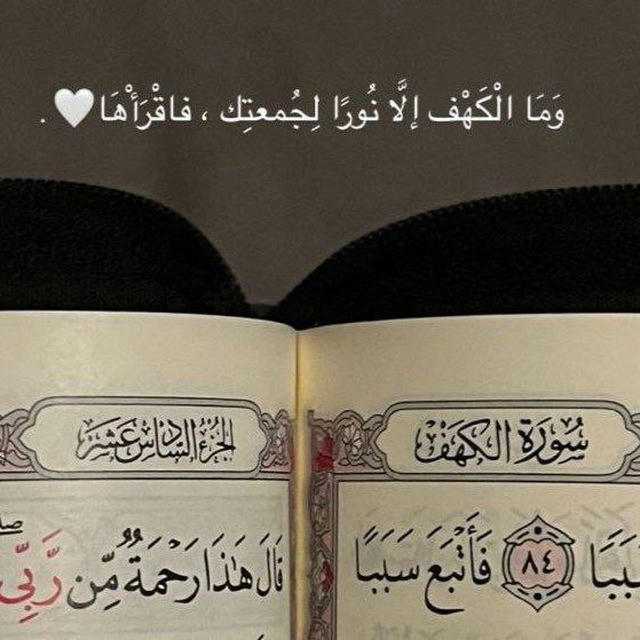 وَمَا الْكَهْف إلَّا نُورًا لِجُمعتِك ، فاقْرَأْهَا🤍 .
سُورَة الكَهف
الجزء السادس عشر
سَبَبًا ٨٤ فَأَتْبَعَ سَبَبًا
قَالَ هَٰذَا رَحْمَةٌ مِّن رَّبِّي